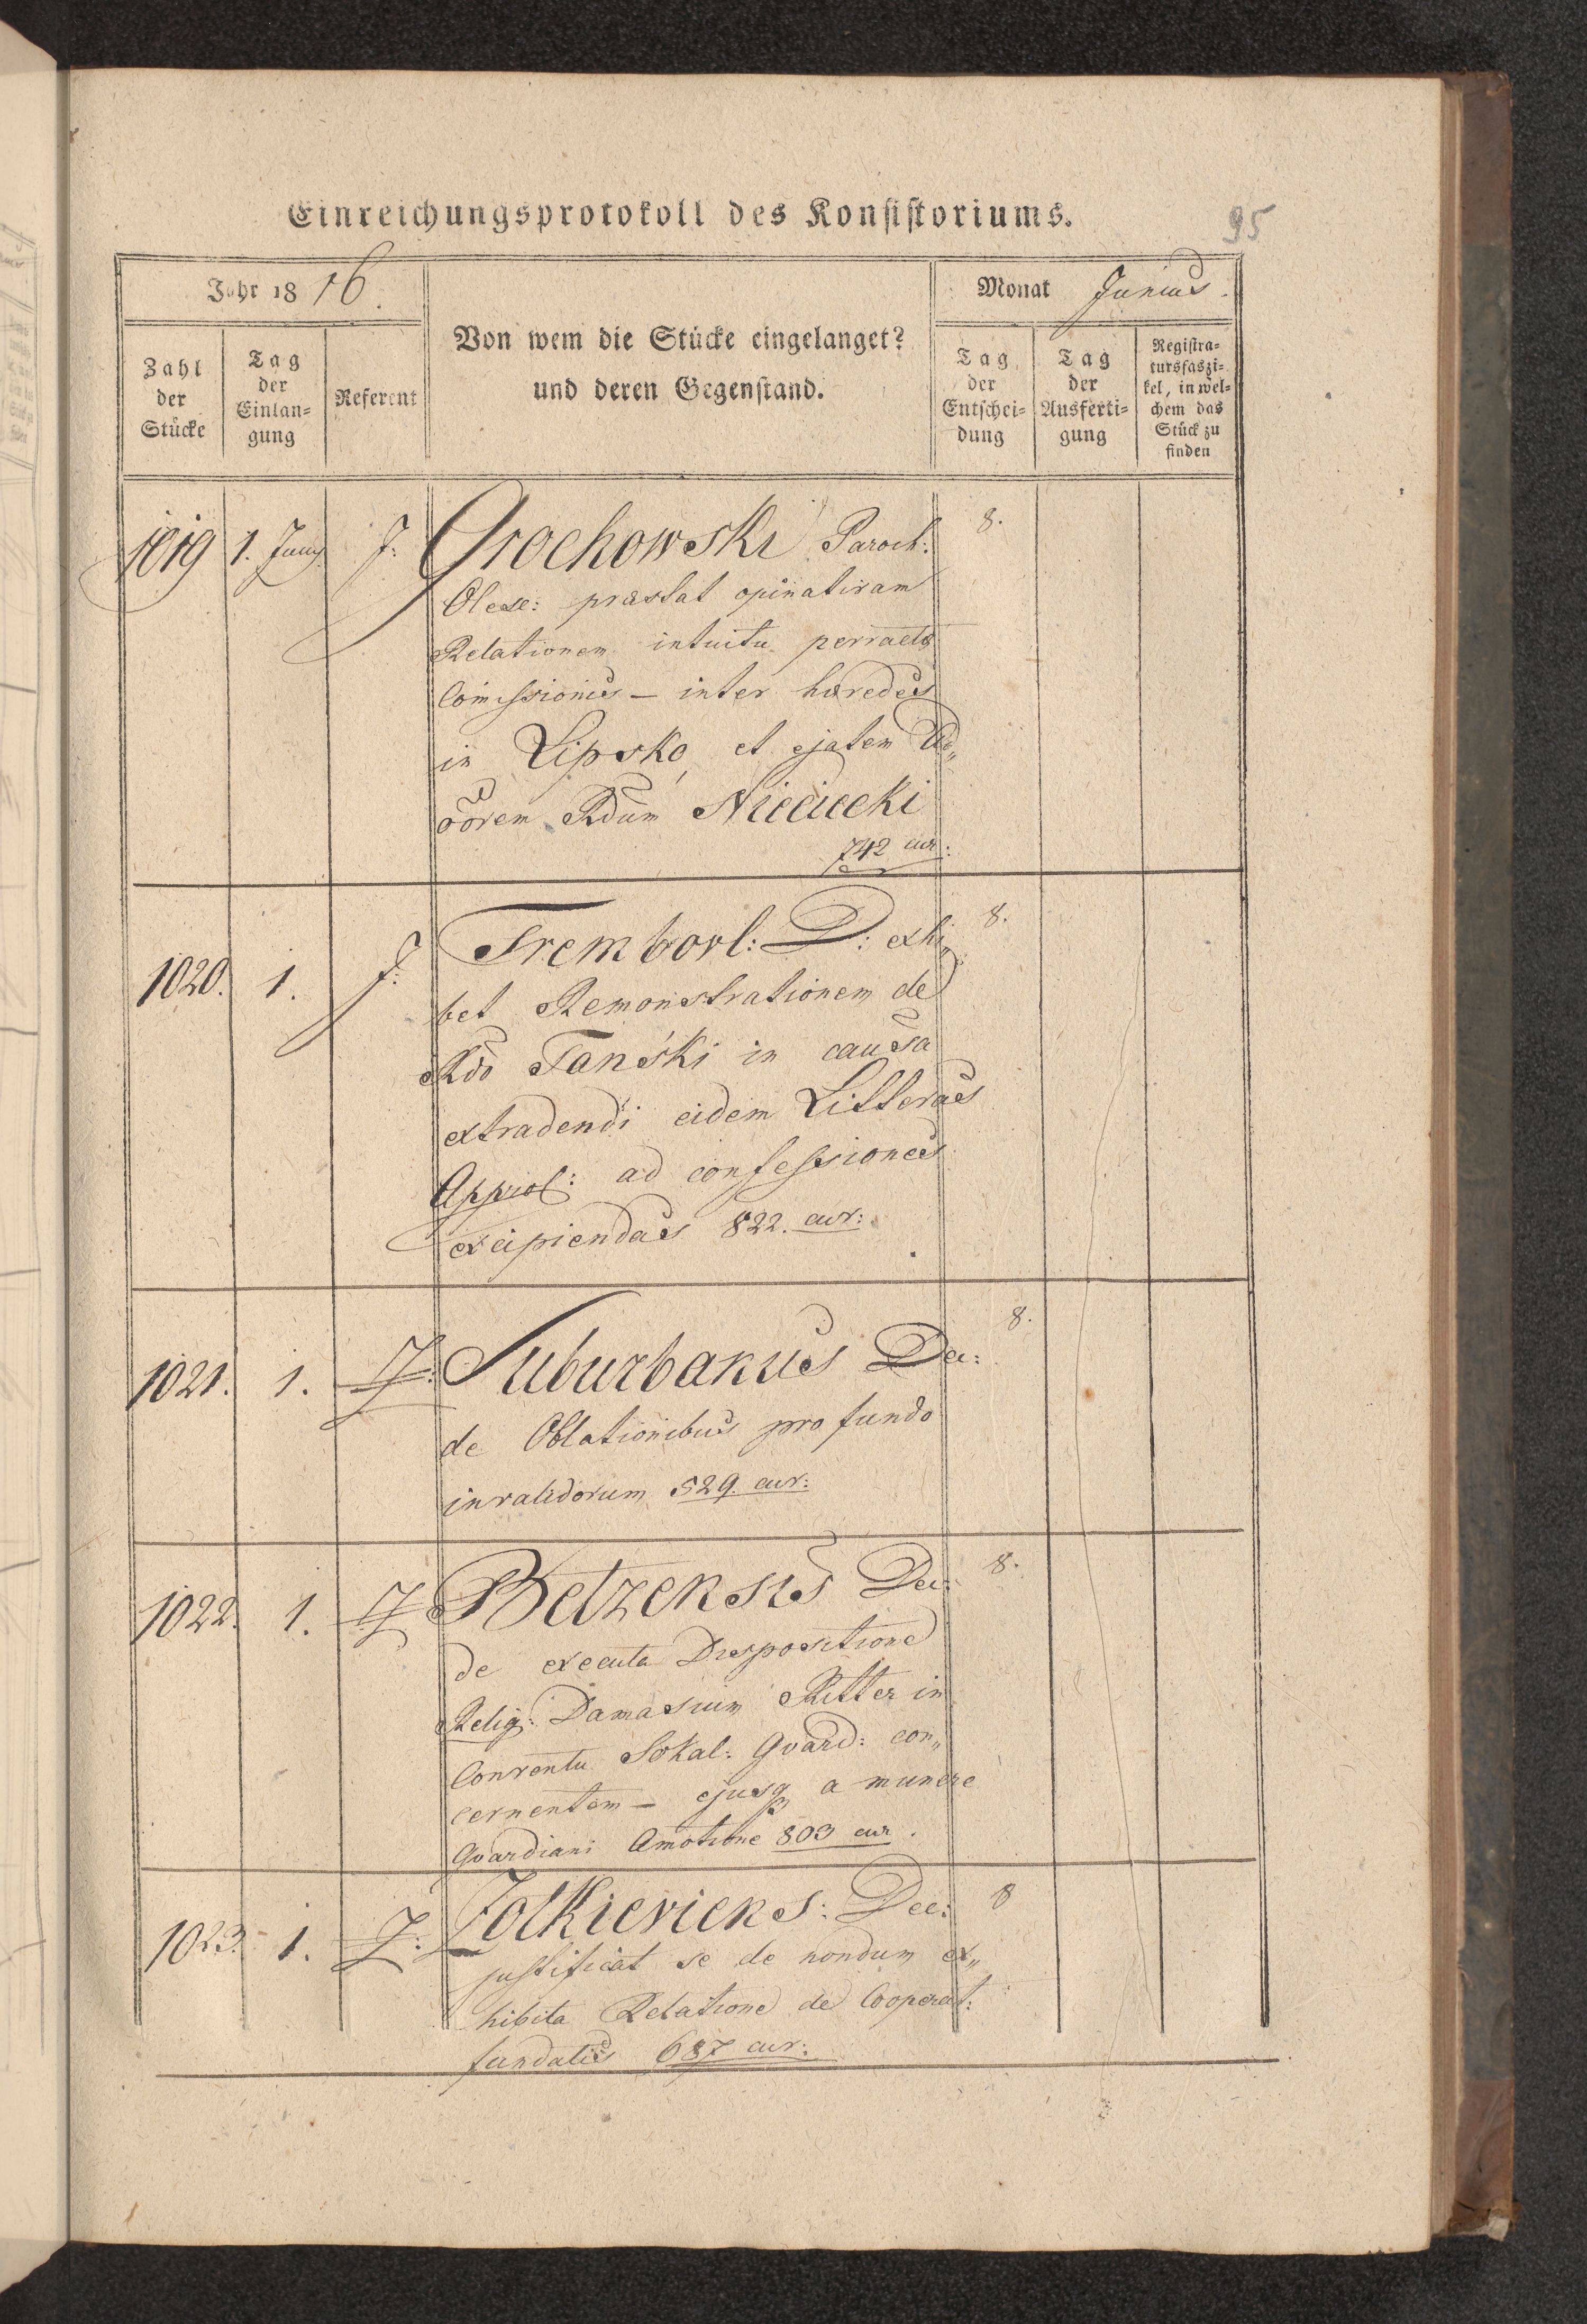 Einreichungsprotokoll des Konsistoriums.
95
Jahr 18 16.
Von wem die Stücke eingelanget?
und deren Gegenstand.
Monat Junius.
Zahl
der
Stücke
Tag
der
Einlan-
gung
Referent
Tag
der
Entschei-
dung
Tag
der
Ausferti-
gung
Registra-
tursfaszi-
kel, in wel-
chem das
Stück zu
finden
1019 1. Juny J: Grochowski Paroch: 8.
Olesc: præstat opinativam
Relationem intuitu peractæ
Comissionis – inter hæredes
in Lipsko et ejatem
Rdum
742 cur:
1020. 1. J: Trembovl: D: exhi„ 8.
bet Remonstrationem de
Rdo Tański in causa
extradendi eidem Litteras
Approb: ad confessiones
excipiendas 822. cur:
1021. 1. J: Suburbanus De: 8.
de Oblationibus pro fundo
invalidorum 529. cur:
1022. 1. J Betzensis De: 8.
de executa Dispositione
Relig: Damasium Ritter in
Conventu Sokal: Gvard: con„
cernentem – ejusq a munere
Gvardiani Amotione 803 cur.
1023. 1. J: Zolkieviens: Dec: 8
justificat se de nondum ex„
hibita Relatione de Cooperat:
fundatis 687 cur: